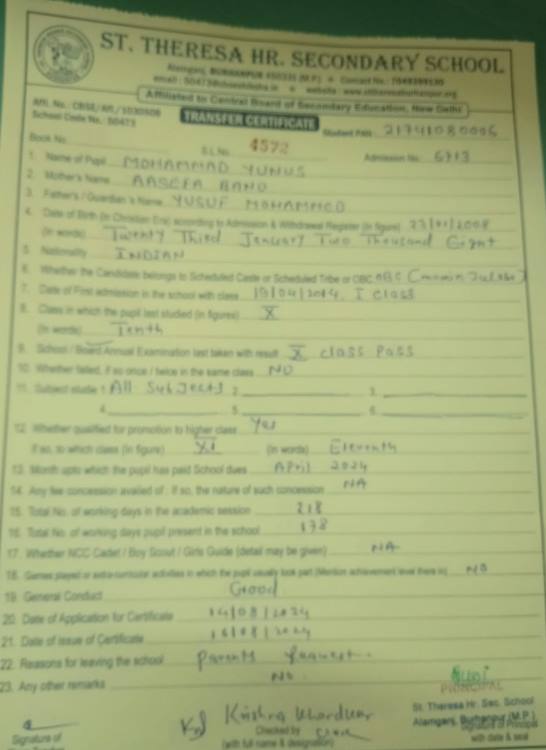 ST. THERESA HR. SECONDARY SCHOOL
Alamganj, BURHANPUR 450331 (M.P.) Contact No.:
Affiliated to Central Board of Secondary Education, New Delhi
Affl. No.: CBSE/Affl./1030508
School Code No.: 50473
TRANSFER CERTIFICATE
Student PEN 21741080006
Book No. S.L.No. 4572 Admission No. 6713
1. Name of Pupil MOHAMMAD YUNUS
2. Mother's Name AASEFA BANO
3. Father's / Guardian's Name YUSUF MOHAMMED
4. Date of Birth (in Christian Era) according to Admission & Withdrawal Register (in figure) 23/01/2008
(in words) Twenty Third January Two Thousand Eight
5. Nationality INDIAN
6. Whether the Candidate belongs to Scheduled Caste or Scheduled Tribe or OBC OBC (momin Julaha)
7. Date of First admission in the school with class 19/04/2014, I class
8. Class in which the pupil last studied (in figures) X
(in words) Tenth
9. School / Board Annual Examination last taken with result X class Pass
10. Whether failed, if so once / twice in the same class NO
11. Subject studie 1 All Subjects 2. 3.
4. 5. 6.
12. Whether qualified for promotion to higher class Yes
if so, to which class (in figure) XI (in words) Eleventh
13. Month upto which the pupil has paid School dues April 2024
14. Any fee concession availed of : If so, the nature of such concession NA
15. Total No. of working days in the academic session 218
16. Total No. of working days pupil present in the school 178
17. Whether NCC Cadet / Boy Scout / Girls Guide (detail may be given) NA
18. Games played or extra-curricular activities in which the pupil usually took part (Mention achievement level there in) NO
19. General Conduct Good
20. Date of Application for Certificate 14/08/2024
21. Date of issue of Certificate 16/08/2024
22. Reasons for leaving the school Parents Request.
23. Any other remarks No.
PRINCIPAL
St. Theresa Hr. Sec. School
Alamganj, Burhanpur (M.P.)
Signature of Principal
with date & seal
Signature of
Checked by
(with full name & designation)